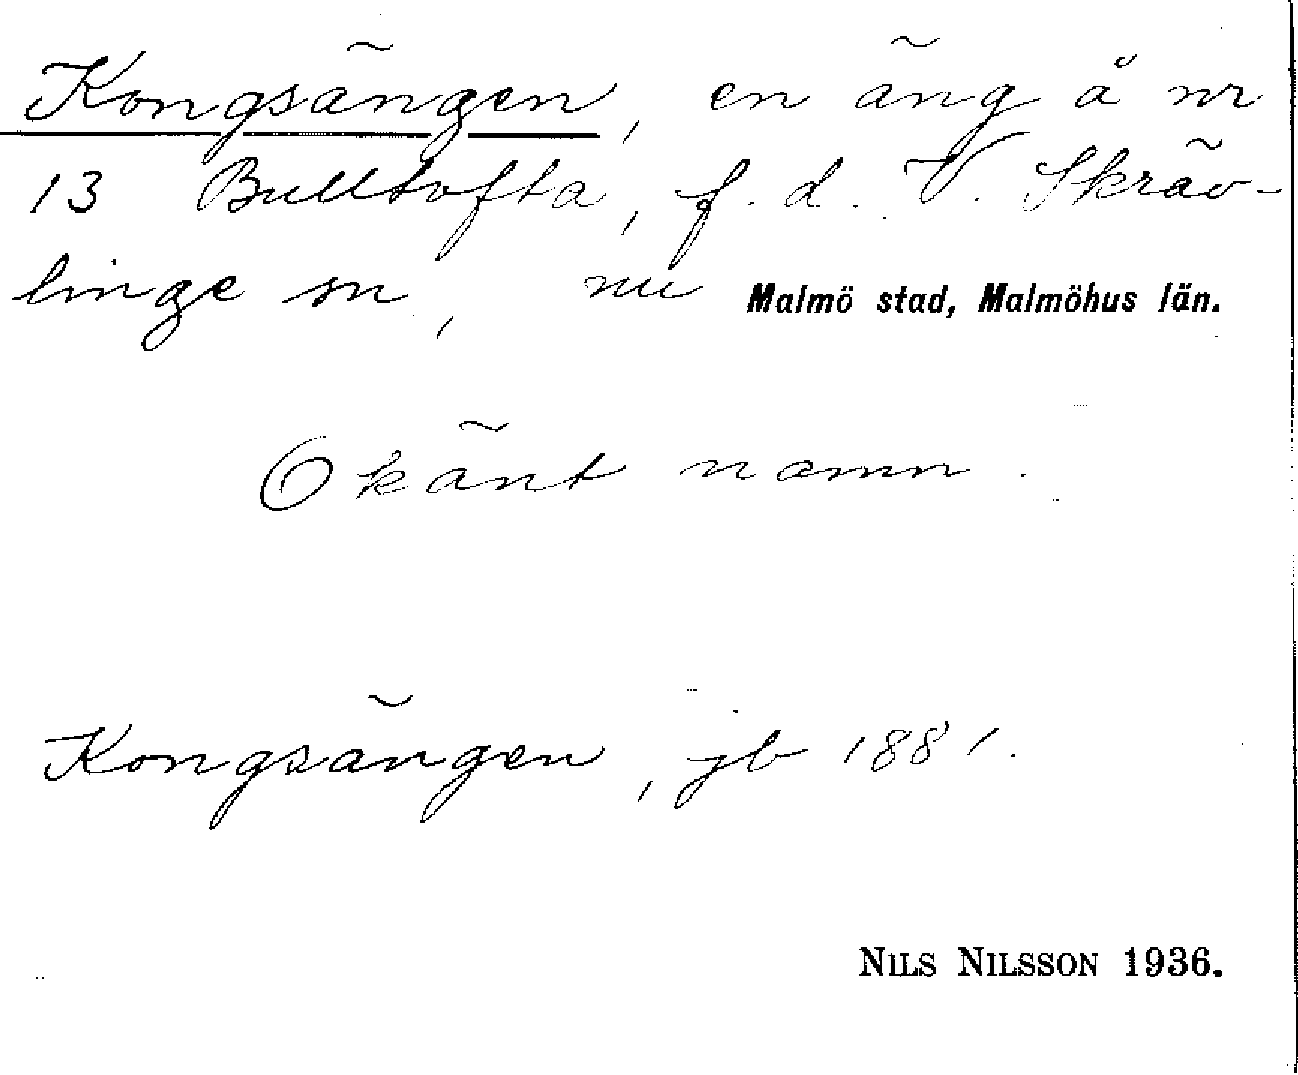 Kongsängen, en äng å nr
13 Bulltofta, f. d. V. Skräv-
linge sn, nu Malmö stad, Malmöhus län.
Okänt namn.
Kongsängen, jb 1881.
NILS NILSSON 1936.